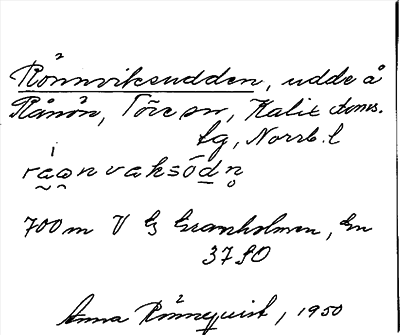 Rönnviksudden, udde å
Rånön, Töre sn, Kalix doms.
sg, Norrb. l
700 m V G Granholmen, En
37 SO
Anna Rönnquist, 1950